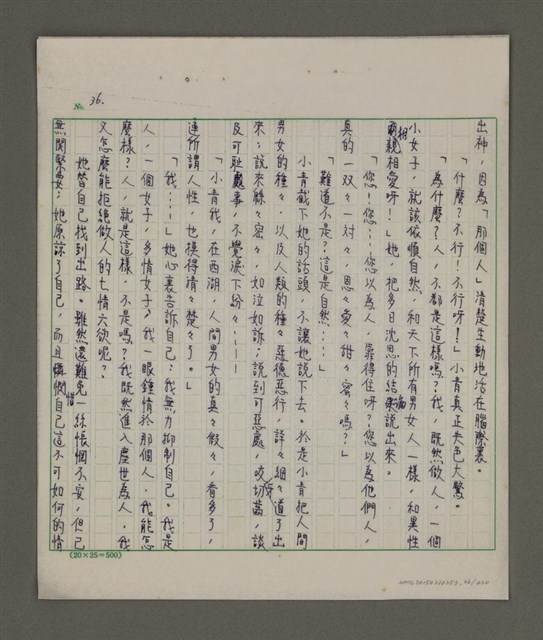 No. 36.
出神，因為「那個人」清楚生動地活在腦際裏。
「什麼？不行！不行呀！」小青真正失色大驚。
「為什麼？人，不都是這樣嗎？我，既然做人，一個
小女子，就該依順自然，和天下所有男女人一樣，和異性
相親相愛呀！」她，把多日沈思的結論說出來。
「您！您……您以為人，靠得住呀？您以為他們人，
真的一双々一对々，恩々愛々甜々蜜々嗎？」
「難道不是？這是自然……」
小青截下她的話頭，不讓她說下去。於是小青把人間
男女的種々，以及人類的種々惡德惡行，詳々細々道了出
來；說來緜々密々，如泣如訴；說到可惡處，咬牙切齒，談
及可耻處事，不覺淚下紛々……
「小青我，在西湖，人間男女的真々假々，看多了，
連所謂人性，也摸得清々楚々了。」
「我……」她心裏告訴自己：我無力抑制自己。我是
人，一個女子，多情女子？我一眼鍾情於那個人，我能怎
麼樣？人，就是這樣，不是嗎？我既然進入塵世為人，我
又怎麼能拒絕做人的七情六欲呢？
她替自己找到出路。雖然還難免一絲悵惘不安，但已
無關緊要；她原諒了自己，而且憐惜自己這不可如何的情
(20×25=500)